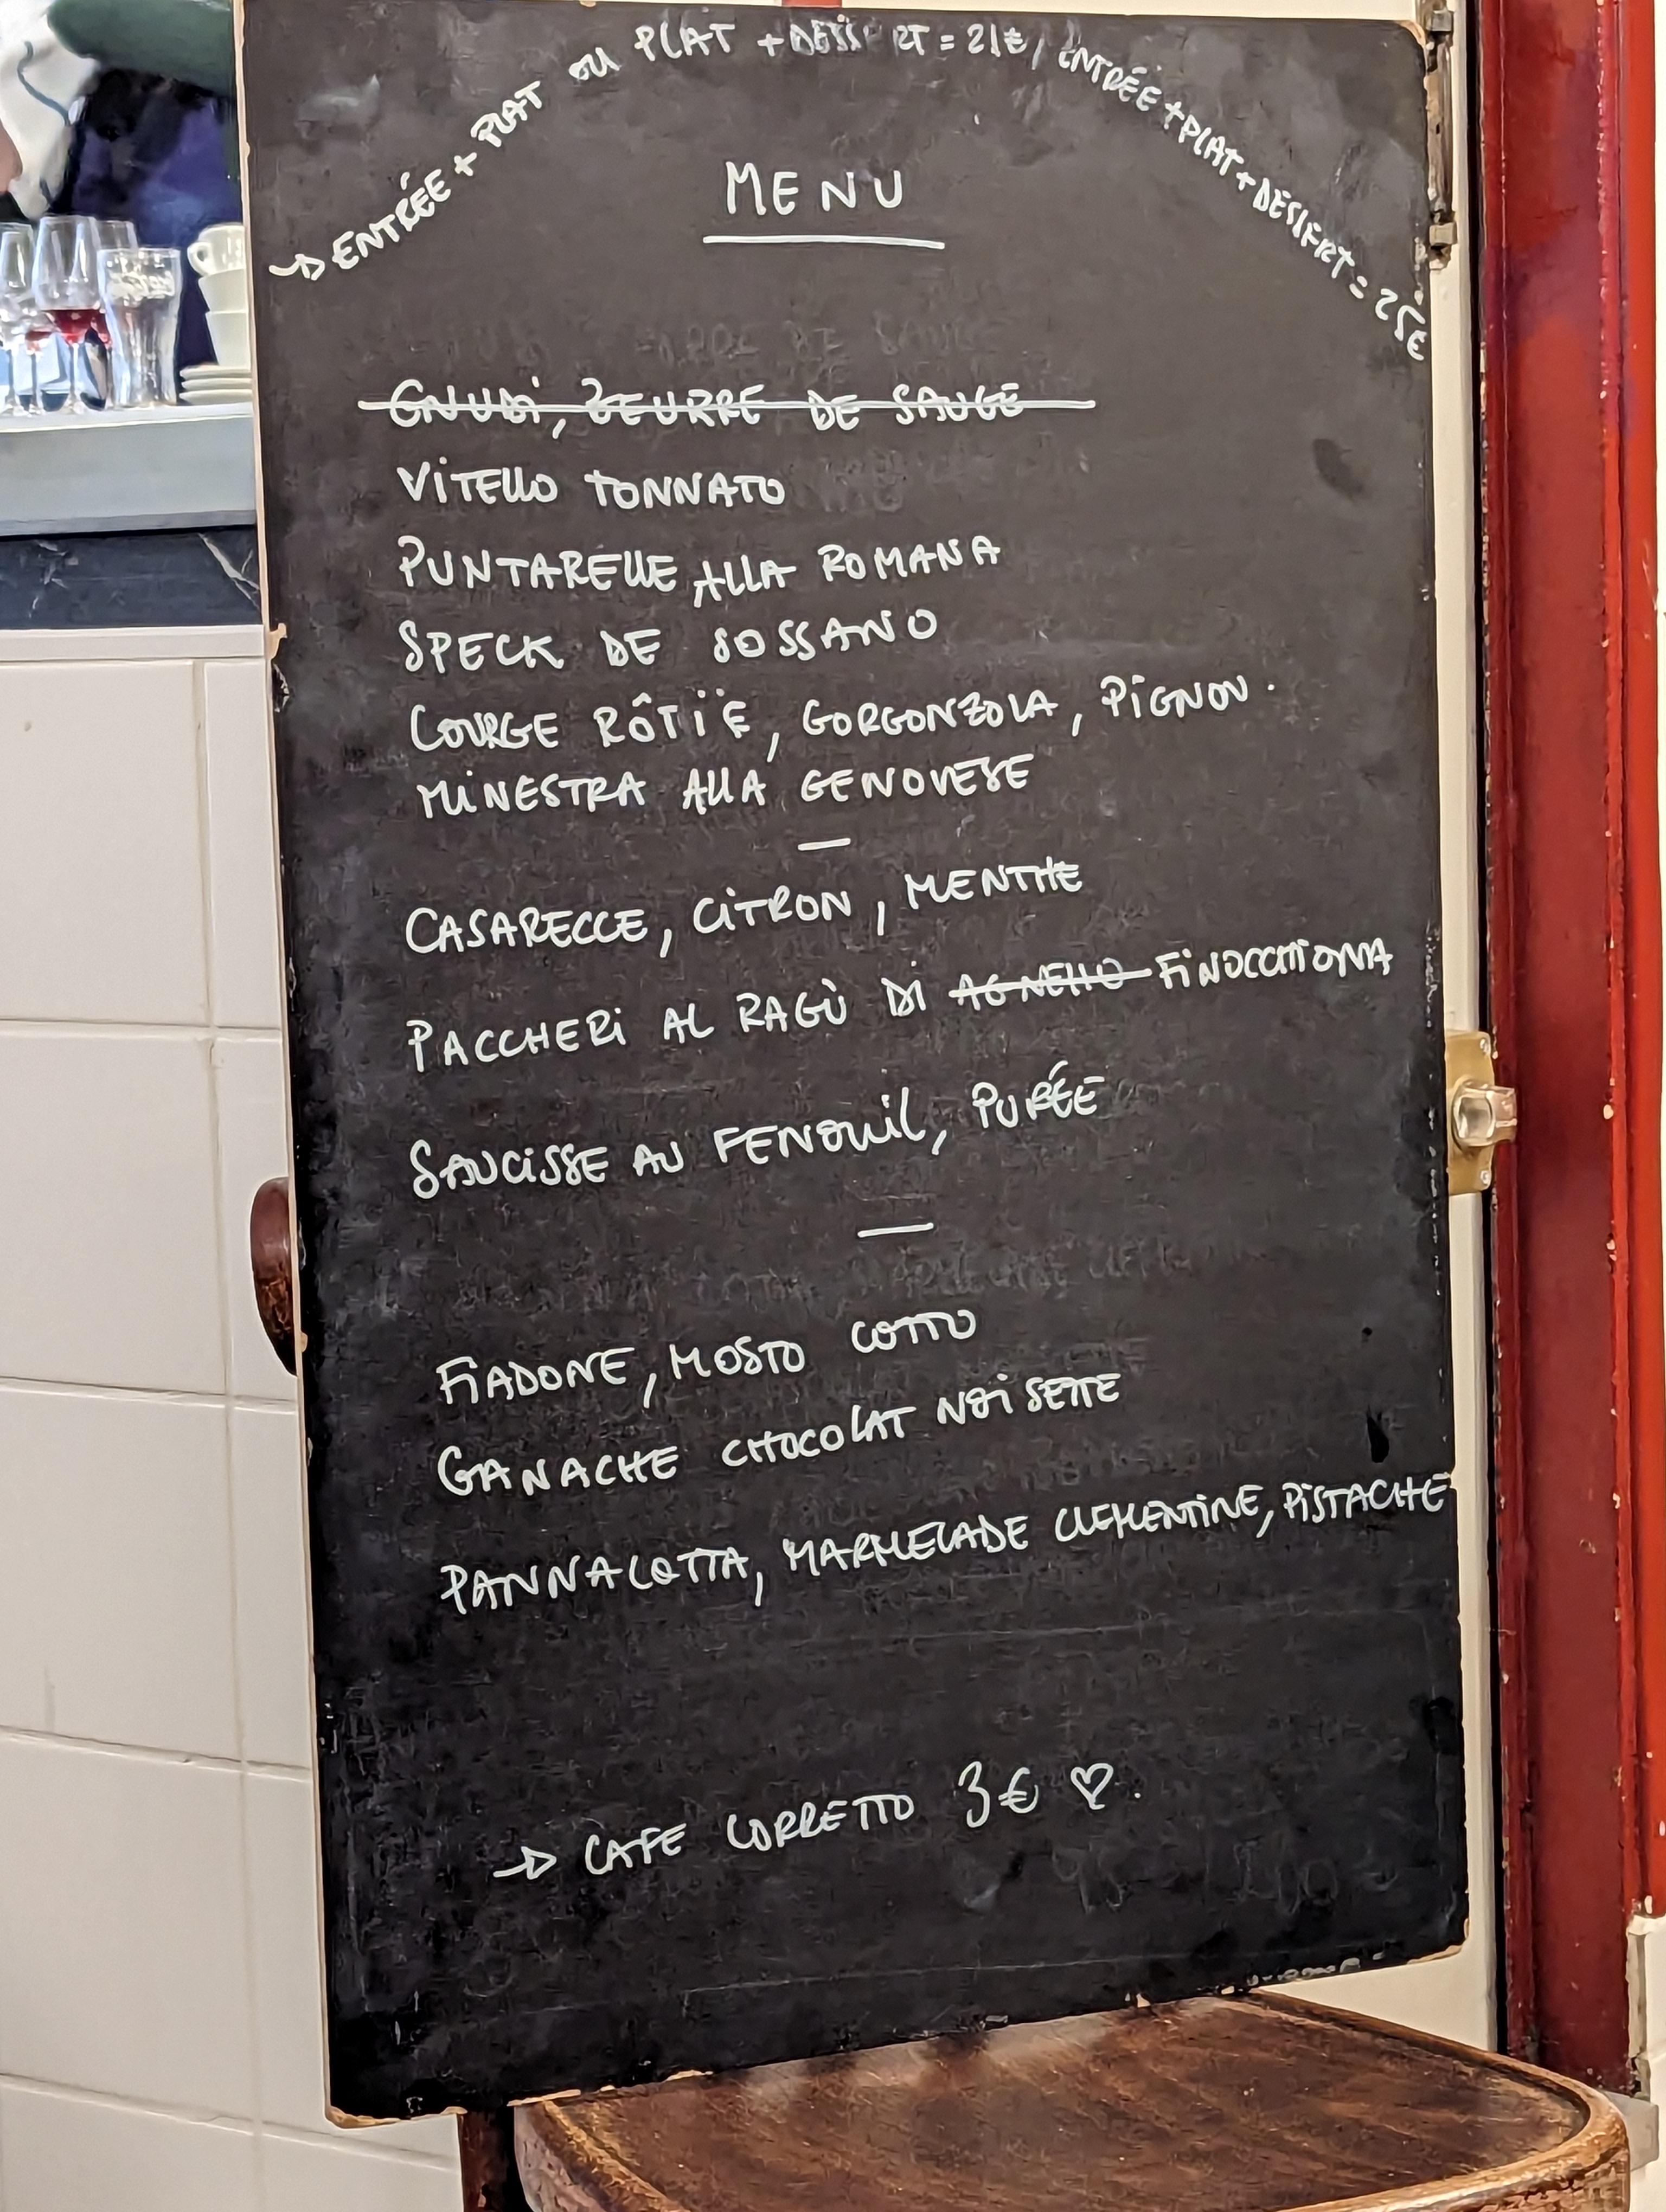 → ENTRÉE + PLAT OU PLAT + DESSERT = 21€, ENTRÉE + PLAT + DESSERT = 25€
MENU
GNUDI, BEURRE DE SAUGE
VITELLO TONNATO
PUNTARELLE ALLA ROMANA
SPECK DE SOSSANO
COURGE RÔTIE, GORGONZOLA, PIGNON.
MINESTRA ALLA GENOVESE
—
CASARECCE, CITRON, MENTHE
PACCHERI AL RAGÙ DI AGNELLO FINOCCHIONA
SAUCISSE AU FENOUIL, PURÉE
—
FIADONE, MOSTO COTTO
GANACHE CHOCOLAT NOISETTE
PANNACOTTA, MARMELADE CLEMENTINE, PISTACHE
→ CAFE CORRETTO 3€ ♡.